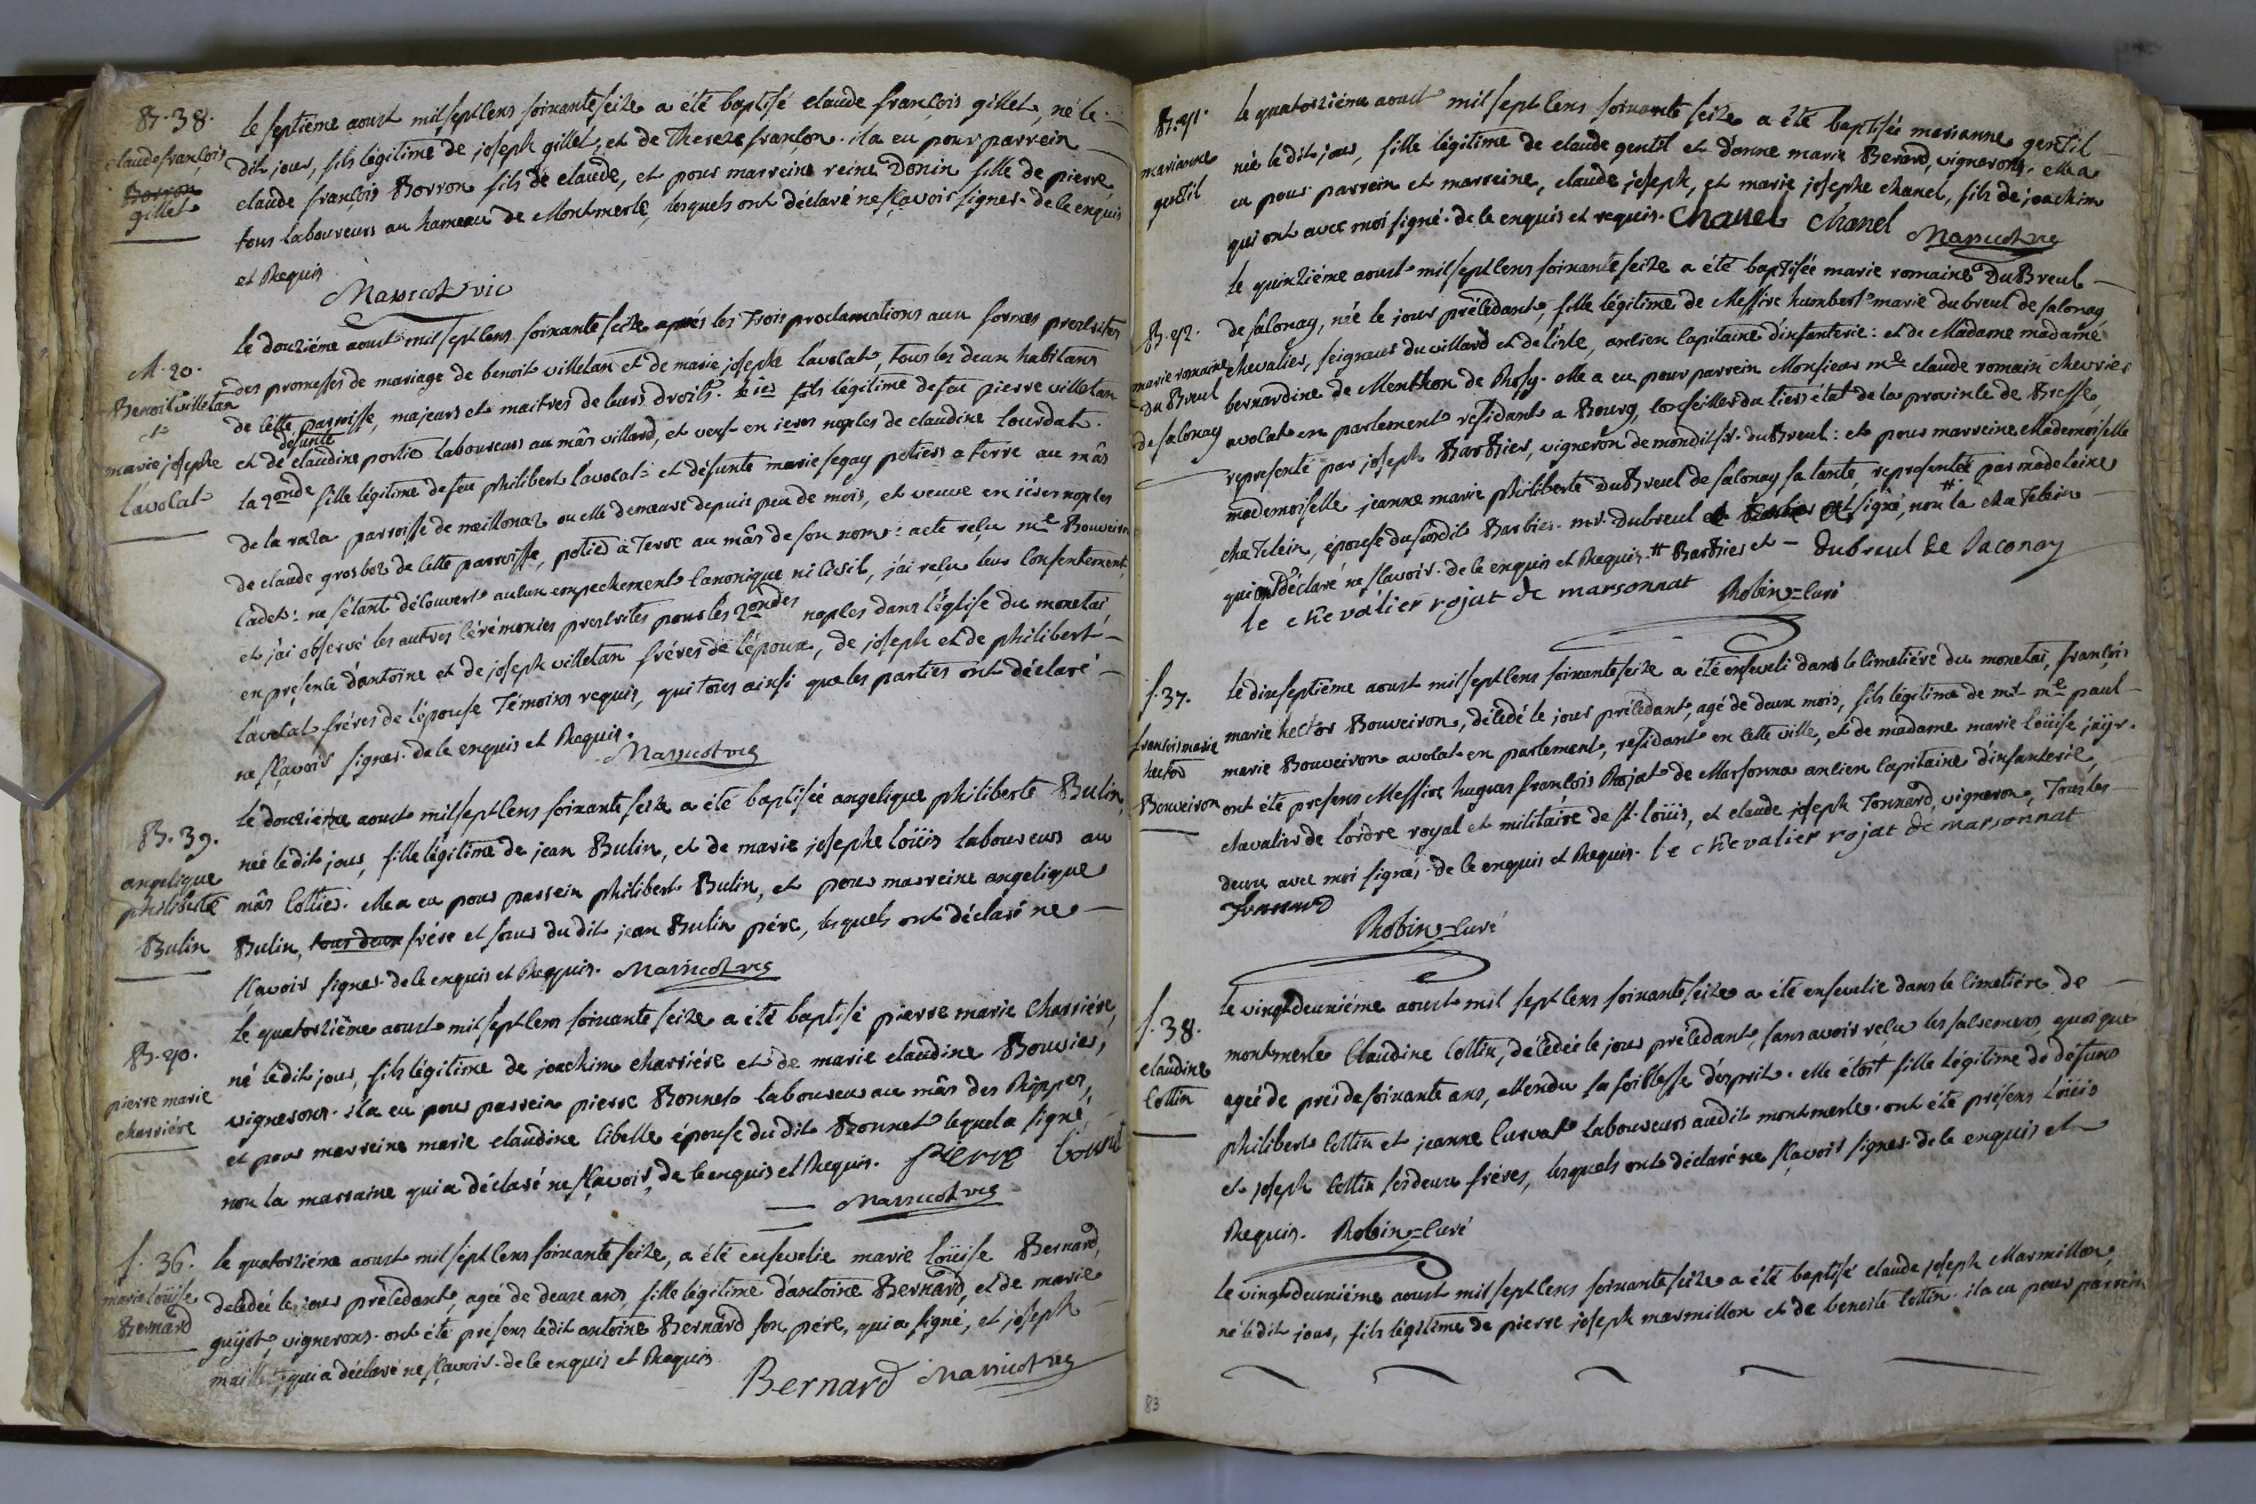 B. 38.
claude françois
Borron
gillet
le septiéme aoust mil sept cens soixante seize a été baptisé claude françois gillet, né le
dit jour, fils légitime de joseph gillet, et de Thereze franson. il a eu pour parrein
claude françois Borron fils de claude, et pour marreine reine Donin fille de pierre,
tous laboureurs au hameau de Montmerle, lesquels ont déclaré ne sçavoir signer. de ce enquis
et Requis
Massicot vic
M. 20.
Benoit villetan
et
marie josephe
l'avocat
le douziéme aoust mil sept cens soixante seize aprés les trois proclamations aux formes prescrites
des promesses de mariage de benoit villetan et de marie josephe l'avocat, tous les deux habitans
de cette parroisse, majeurs et maitres de leurs droits. le 1er fils légitime de feu pierre villetan
et de defunte claudine portié laboureurs au mâs villard, et veuf en 1eres nopces de claudine Courdat.
la 2onde fille légitime de feu philibert l'avocat et défunte marie segay potiers a terre au mâs
de la raza parroisse de meillonaz ou elle demeure depuis peu de mois, et veuve en 1eres nopces
de claude grosboz de cette parroisse, potier à terre au mâs de son nom: acte reçu me Bouveiron
cadet: ne s'étant découvert aucun empechement canonique ni civil, j'ai reçu leur consentement,
et j'ai observé les autres cérémonies prescrites pour les 2ondes nopces dans l'église du monetai
en présence d'antoine et de joseph villetan fréres de l'époux, de joseph et de philibert
l'avocat fréres de l'épouse Témoins requis, qui tous ainsi que les parties ont déclaré
ne sçavoir signer. de ce enquis et Requis.
Massicot vic
B. 39.
angelique
philiberte
Bulin
le douziéme aoust mil sept cens soixante seize a été baptisée angelique philiberte Bulin,
née le dit jour, fille légitime de jean Bulin, et de marie josephe loüis laboureurs au
mâs Cottier. elle a eu pour parrein philibert Bulin, et pour marreine angelique
Bulin, tous deux frére et sœur du dit jean Bulin pére, lesquels ont déclaré ne
sçavoir signer. de ce enquis et Requis. Massicot vic
B. 40.
pierre marie
charriére
le quatorziéme aoust mil sept cens soixante seize a été baptisé pierre marie Charriére,
né le dit jour, fils légitime de joachim charriére et de marie claudine Bouvier,
vignerons. il a eu pour parrein pierre Bonnet laboureur au mâs des Rippes,
et pour marreine marie claudine Cibelle épouse du dit Bonnet lequel a signé,
non la marraine qui a déclaré ne sçavoir, de ce enquis et Requis. pierre
Massicot vic
S. 36.
marie loüise
Bernard
le quatorziéme aoust mil sept cens soixante seize, a été ensevelie marie loüise Bernard,
décédée le jour précédant, agée de deux ans, fille légitime d'antoine Bernard, et de marie
guyot, vignerons. ont été présens le dit antoine Bernard son pére, qui a signé, et joseph
maillet, qui a déclaré ne sçavoir. de ce enquis et Requis
Bernard Massicot vic
B. 41.
marianne
gentil
le quatorziéme aoust mil sept cens soixante seize a été baptisée marianne gentil
née le dit jour, fille légitime de claude gentil et d'anne marie Berard, vignerons. elle a
eu pour parrein et marreine, claude joseph, et marie josephe chanel, fils de joachim
qui ont avec moi signé. de ce enquis et requis. Chanel chanel
Massicot vic
B. 42.
marie romaine
Du Breul
de salonay
le quinziéme aoust mil sept cens soixante seize a été baptisée marie romaine DuBreul
de salonay, née le jour précédant, fille légitime de Messire humbert marie dubreul de salonay
chevalier, seigneur du villard et de l'isle, ancien Capitaine d'infanterie: et de Madame madame
bernardine de Menthon de Rosy. elle a eu pour parrein Monsieur me claude romain chevrier
avocat en parlement residant a Bourg, conseiller du tiers état de la province de Bresse,
representé par joseph Barbier, vigneron de mondit sr. du Breul: et pour marreine Mademoiselle
mademoiselle jeanne marie philiberte DuBreul de salonay sa tante, representée par madeleine
chatelein, épouse du susdit Barbier. mr. dubreul et Barbier ont signé, non # la chatelein
qui ont déclaré ne sçavoir. de ce enquis et Requis. # Barbier et — dubreul de Saconay
le chevalier rojat de marsonnat Robin=Curé
S. 37.
francois marie
hector
Bouveiron
le dixseptiéme aoust mil sept cens soixante seize a été enseveli dans le cimetiére du monetai, françois
marie hector Bouveiron, décédé le jour précédant, agé de deux mois, fils légitime de mr me paul
marie Bouveiron avocat en parlement, residant en cette ville, et de madame marie loüise jäyr.
ont été presens Messire hugues françois Rojat de Marsonna ancien Capitaine d'infanterie,
chevalier de l'ordre royal et militaire de st. loüis, et claude joseph Tonnard, vigneron, Tous les
deux avec moi signés. de ce enquis et Requis. le chevalier rojat de marsonnat
Tonnard
Robin=Curé
S. 38.
claudine
Cottin
le vingtdeuxiéme aoust mil sept cens soixante seize a été ensevelie dans le cimetiére de
montmerle Claudine Cottin, décédée le jour précédant, sans avoir reçu les sacremens, quoique
agée de prés de soixante ans, attendu sa foiblesse d'esprit. elle étoit fille légitime de defuns
philibert Cottin et jeanne Curvat laboureurs audit montmerle. ont été présens Loüis
et joseph Cottin ses deux fréres, lesquels ont déclaré ne sçavoir signer. de ce enquis et
Requis. Robin=Curé
le vingtdeuxiéme aoust mil sept cens soixante seize a été baptisé claude joseph Marmillon,
né le dit jour, fils légitime de pierre joseph marmillon et de benoite Cottin. il a eu pour parrein
83